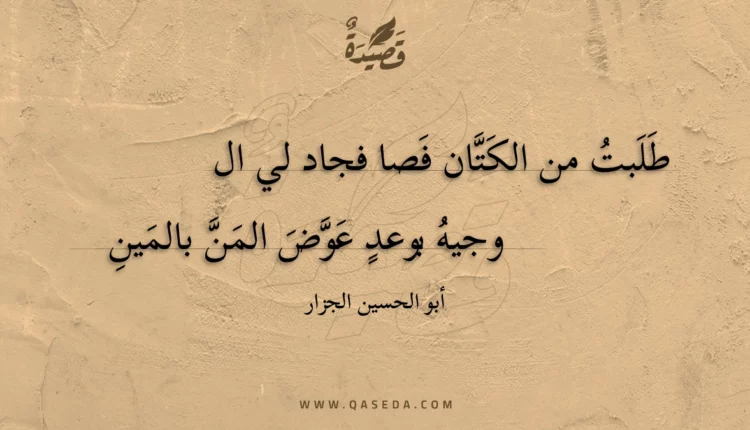 قَصِيدَةٌ
طَلَبتُ من الكَتَّان فَصا فجاد لي ال
وجيهُ بوعدٍ عَوَّضَ المَنَّ بالمَينِ
أبو الحسين الجزار
WWW.QASEDA.COM